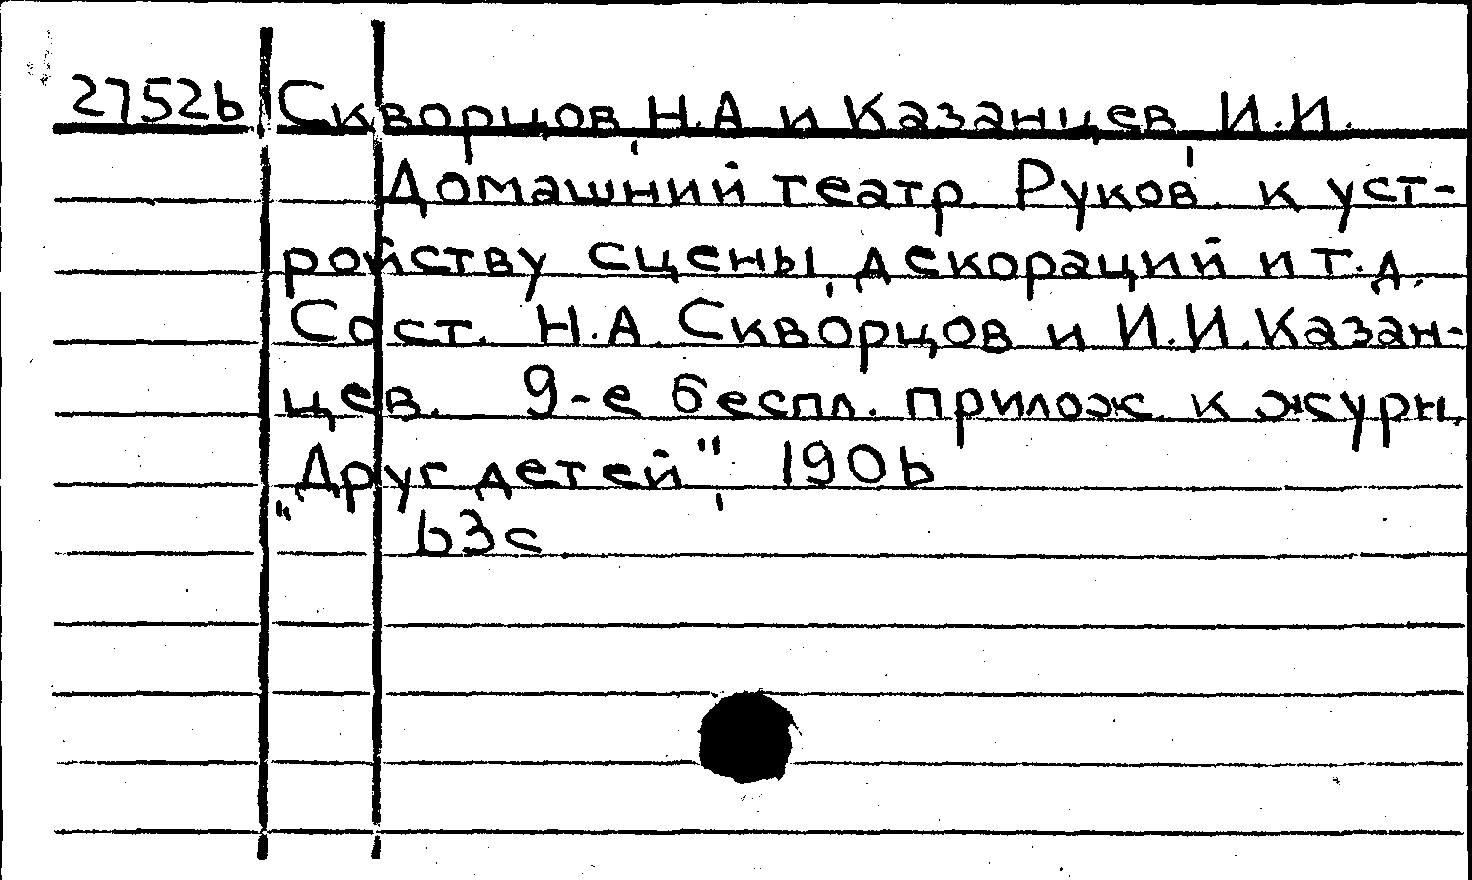 27526 Скворцов, Н.А и Казанцев, И.И.
Домашний театр. Руков. к уст-
ройству сцены, декораций и т.д.
Сост. Н.А. Скворцов и И.И. Казан-
цев. 9-е беспл. прилож. к журн.
„Друг детей", 1906
63с